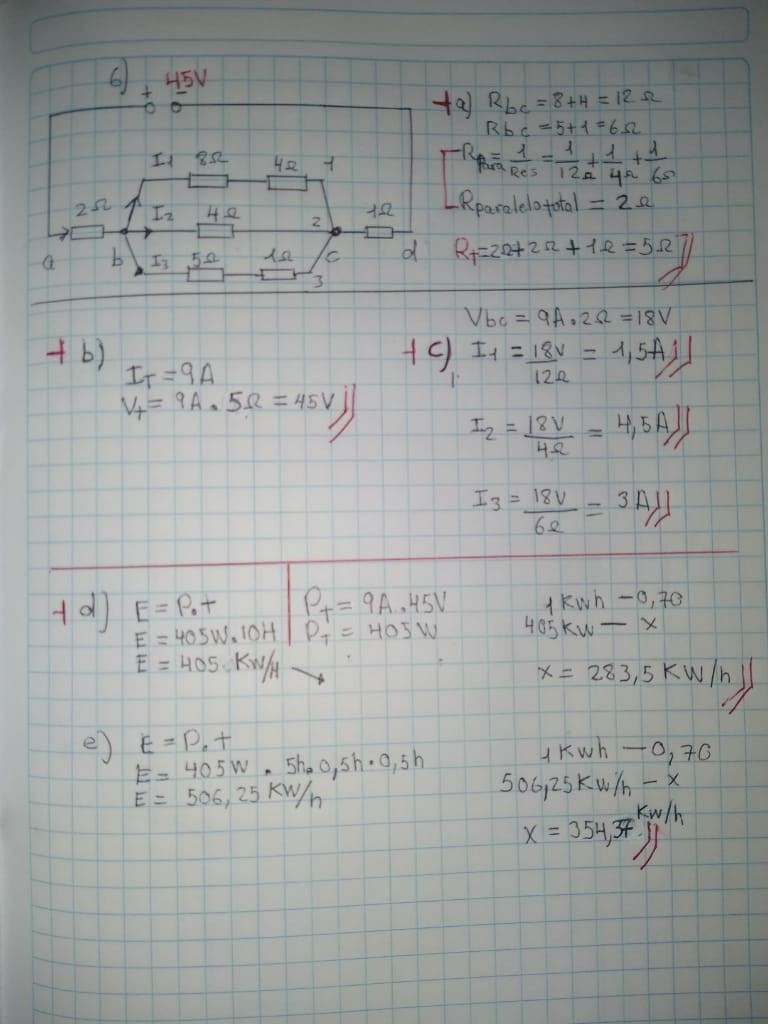 6)
+ 45V
I1 8Ω 4Ω 1
2Ω I2 4Ω 2 1Ω
a b I3 5Ω 1Ω c d
3
a) Rbc = 8+4 = 12 Ω
Rbc = 5+1 = 6Ω
Rpara = 1/Res = 1/12Ω + 1/4Ω + 1/6Ω
Rparalelototal = 2Ω
RT = 2Ω+2Ω+1Ω = 5Ω
b)
IT = 9A
VT = 9A . 5Ω = 45V
Vbc = 9A.2Ω = 18V
c) I1 = 18V/12Ω = 1,5A
I2 = 18V/4Ω = 4,5A
I3 = 18V/6Ω = 3A
d) E = P.t
E = 405W.10H
E = 405 KW/H
PT = 9A.45V
PT = 405W
1 Kwh – 0,70
405KW – x
x = 283,5 KW/h
e) E = P.t
E = 405W . 5h.0,5h.0,5h
E = 506,25 KW/h
1Kwh – 0,70
506,25KW/h – x
x = 354,37 KW/h